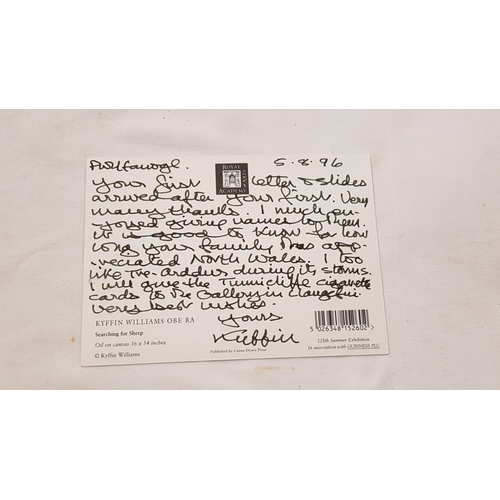 Pwllfanogl.
5.8.96
ROYAL
ACADEMY
OF ARTS
Your first letter & slides
arrived after your first. Very
many thanks. I much en-
joyed giving names to them.
It is good to know for how
long your family has app-
reciated North Wales. I too
like Tre-arddur during its storms.
I will give the Tunnicliffe cigarette
cards to the Gallery in Llangefni.
Very best wishes.
Yours
Kyffin
KYFFIN WILLIAMS OBE RA
Searching for Sheep
Oil on canvas 36 x 54 inches
© Kyffin Williams
Published by Canns Down Press
5 026348 152602 >
228th Summer Exhibition
In association with GUINNESS PLC